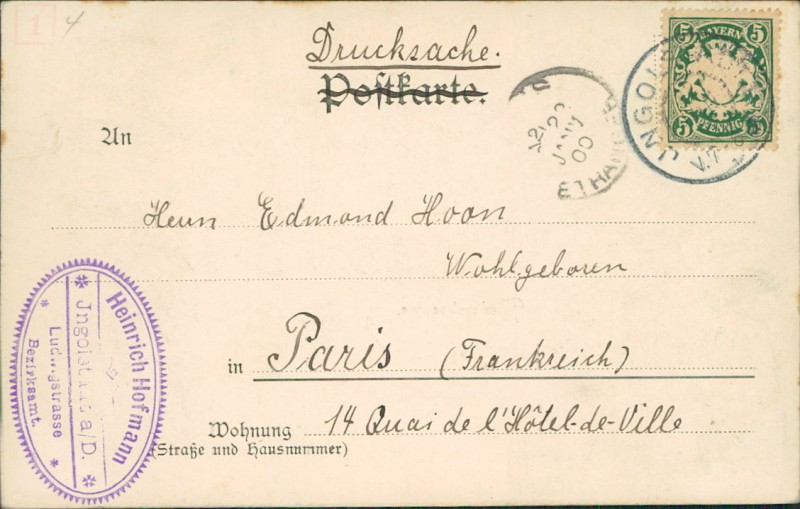 1 4
Drucksache.
Postkarte.
5 BAYERN 5
5 PFENNIG 5
V.7
12
22
JANV
00
ETRANGER
An
Herrn Edmond Hoon
Wohlgeboren
in Paris (Frankreich)
Wohnung 14 Quai de l'Hôtel-de-Ville
(Straße und Hausnummer)
Heinrich Hofmann
Jngolstadt a/D.
Ludwigstrasse
Bezirksamt.